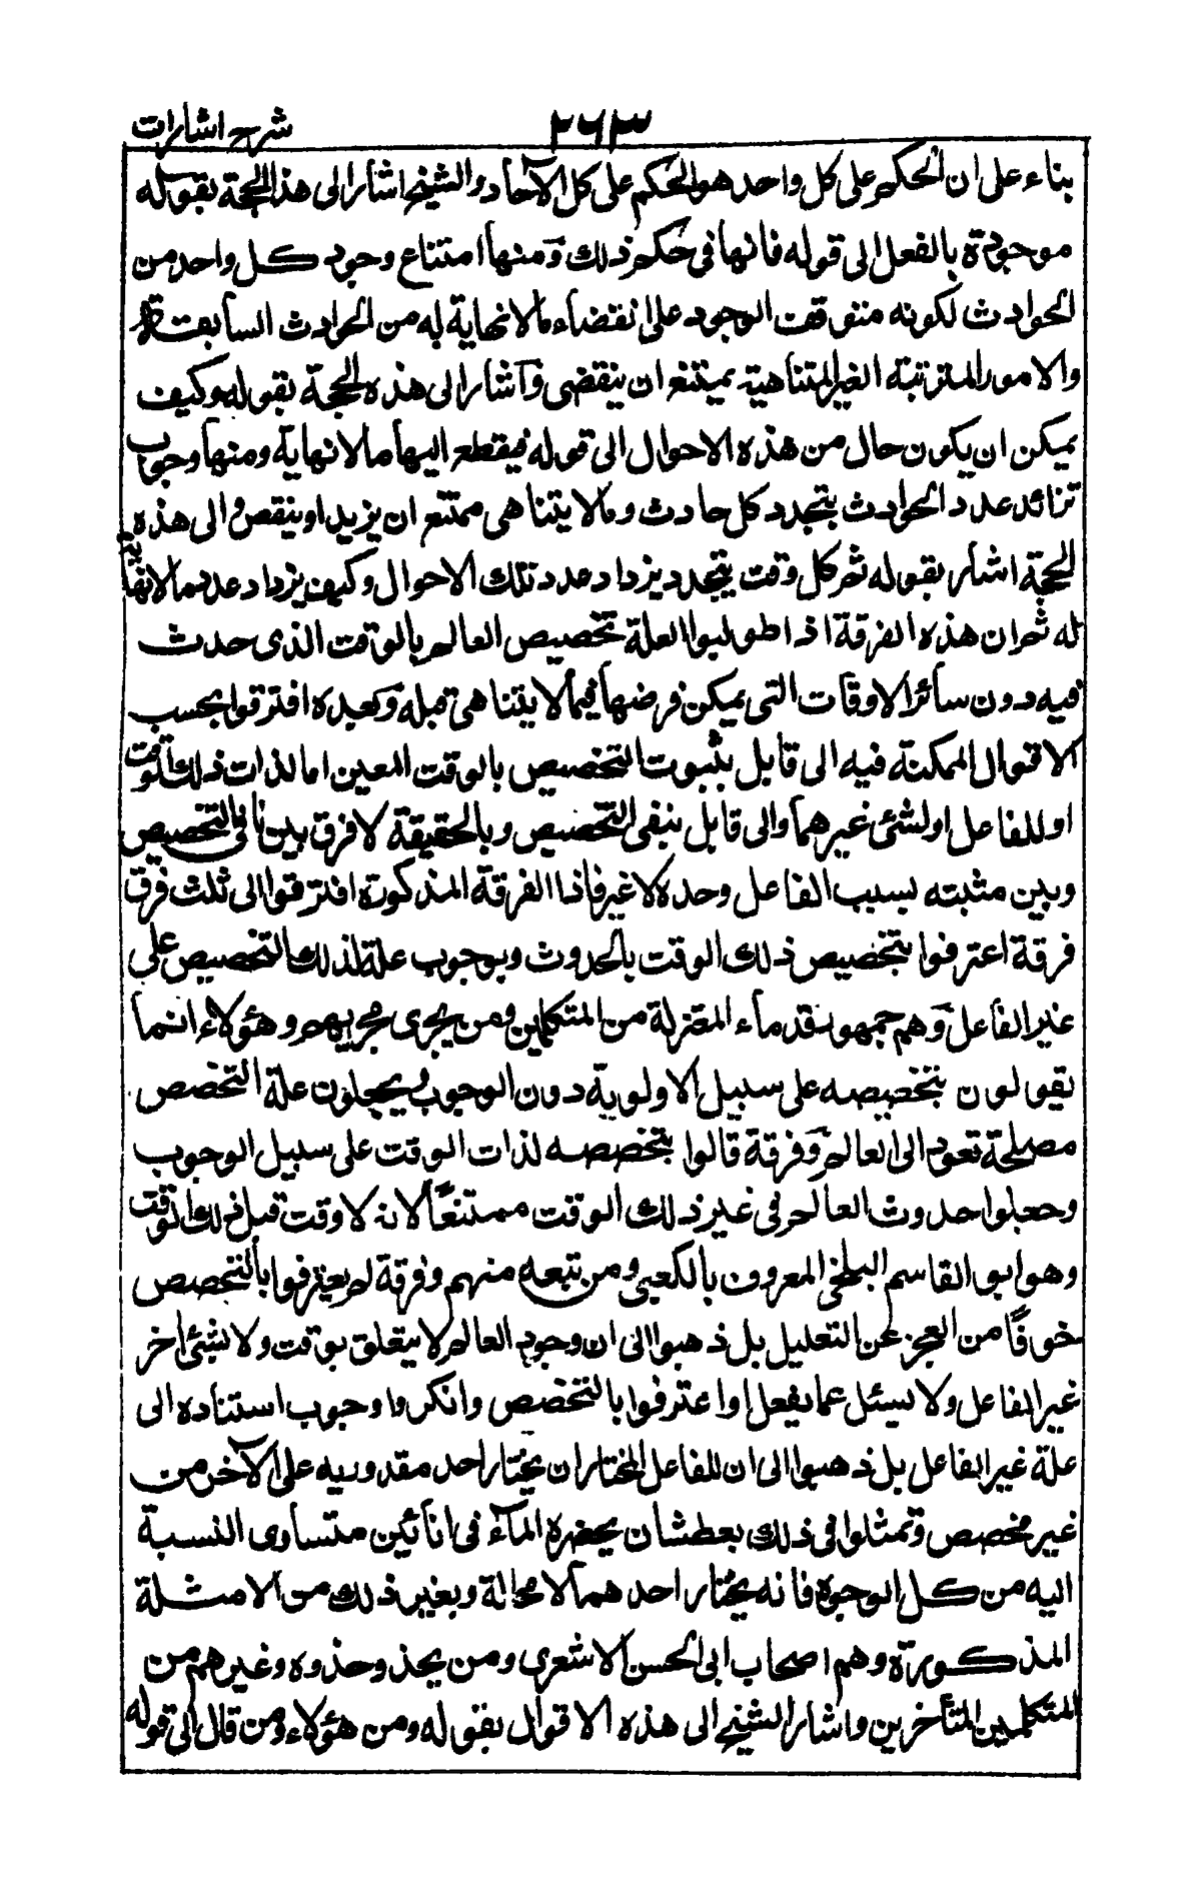 شرح اشارات
٢٦٣
بناء على ان الحكم على كل واحد هو الحكم على كل الآحاد والشيخ اشار الى هذا الحجة بقوله
موجودة بالفعل الى قوله فانها فى حكم ذلك ومنها امتناع وجود كل واحد من
الحوادث لكونه متوقف الوجود على انقضاء مالا نهاية له من الحوادث السابقة
والامور المترتبة الغير المتناهية يمتنع ان ينقضى وآشار الى هذه الحجة بقوله وكيف
يمكن ان يكون حال من هذه الاحوال الى قوله فيقطع اليها مالا نهاية ومنها وجوب
تزائد عدد الحوادث بتجدد كل حادث ومالا يتناهى ممتنع ان يزيد او ينقص والى هذه
الحجة اشار بقوله ثم كل وقت يتجدد يزداد عدد تلك الاحوال وكيف يزداد عدد مالا نهاية
له ثم ان هذه الفرقة اذا طولبوا العلة تخصيص العالم بالوقت الذى حدث
فيه دون سائر الاوقات التى يمكن فرضها فيما لا يتناهى قبله وبعده افترقوا بحسب
الاقوال الممكنة فيه الى قابل بثبوت التخصيص بالوقت المعين اما لذات ذلك الوقت
او للفاعل او لشئ غيرهما والى قابل بنفى التخصيص وبالحقيقة لا فرق بين نافى التخصيص
وبين مثبته بسبب الفاعل وحده لا غير فاذا الفرقة المذكورة افترقوا الى ثلث فرق
فرقة اعترفوا بتخصيص ذلك الوقت بالحدوث وبوجوب علة لذلك التخصيص على
غير الفاعل وهم جمهور قدماء المعتزلة من المتكلمين ومن يجرى مجريهم وهؤلاء انما
يقولون بتخصيصه على سبيل الاولوية دون الوجوب ويجعلون علة التخصص
مصلحة تعود الى العالم وفرقة قالوا بتخصصه لذات الوقت على سبيل الوجوب
وجعلوا حدوث العالم فى غير ذلك الوقت ممتنعًا لانه لا وقت قبل ذلك الوقت
وهو ابو القاسم البلخى المعروف بالكعبى ومن تبعه منهم وفرقة لم يعترفوا بالتخصص
خوفًا من العجز عن التعليل بل ذهبوا الى ان وجود العالم لا يتعلق بوقت ولا بشئ اخر
غير الفاعل ولا يسئل عما يفعل او اعترفوا بالتخصص وانكروا وجوب استناده الى
علة غير الفاعل بل ذهبوا الى ان للفاعل المختار ان يختار احد مقدوريه على الآخر من
غير مخصص وتمثلوا فى ذلك بعطشان يحضره المآء فى انائين متساوى النسبة
اليه من كل الوجوه فانه يختار احدهما لا محالة وبغير ذلك من الامثلة
المذكورة وهم اصحاب ابى الحسن الاشعرى ومن يحذو حذوه وغيرهم من
المتكلمين المتأخرين واشار الشيخ الى هذه الاقوال بقوله ومن هؤلاء ومن قال الى قوله